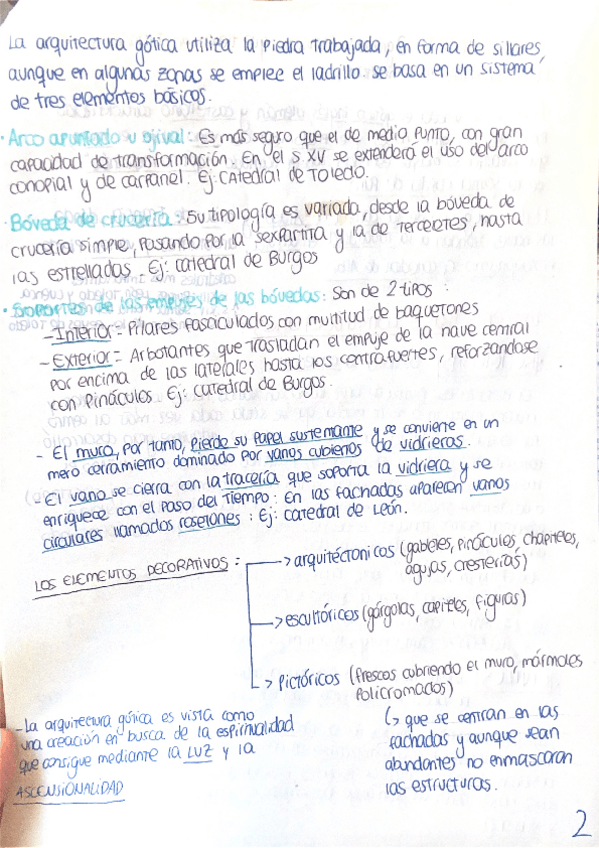 La arquitectura gótica utiliza la piedra trabajada, en forma de sillares,
aunque en algunas zonas se emplee el ladrillo se basa en un sistema
de tres elementos básicos.
· Arco apuntado u ojival: Es más seguro que el de medio punto, con gran
capacidad de transformación. En el s XV se extenderá el uso del arco
conopial y de carpanel. Ej: Catedral de Toledo.
· Bóveda de crucería: Su tipología es variada, desde la bóveda de
crucería simple, pasando por la sexpartita y la de terceletes, hasta
las estrelladas. Ej: catedral de Burgos
· Soportes de los empujes de las bóvedas: Son de 2 tipos:
- Interior = Pilares fasciculados con multitud de baquetones
- Exterior = Arbotantes que trasladan el empuje de la nave central
por encima de las laterales hasta los contrafuertes, reforzándose
con pináculos. Ej: catedral de Burgos.
- El muro, por tanto, pierde su papel sustentante y se convierte en un
mero cerramiento dominado por vanos cubiertos de vidrieras.
- El vano se cierra con la tracería que soporta la vidriera y se
enriquece con el paso del tiempo: En las fachadas aparecen vanos
circulares llamados rosetones: Ej: catedral de León.
LOS ELEMENTOS DECORATIVOS:
-> arquitéctonicos (gabletes, pináculos, chapiteles,
agujas, cresterías)
-> escultóricos (gárgolas, capiteles, figuras)
-> Pictóricos (frescos cubriendo el muro, mármoles
policromados)
↳ que se centran en las
fachadas y aunque sean
abundantes no enmascaran
las estructuras.
- La arquitectura gótica es vista como
una creación en busca de la espiritualidad
que consigue mediante la LUZ y la
ASCENSIONALIDAD
2